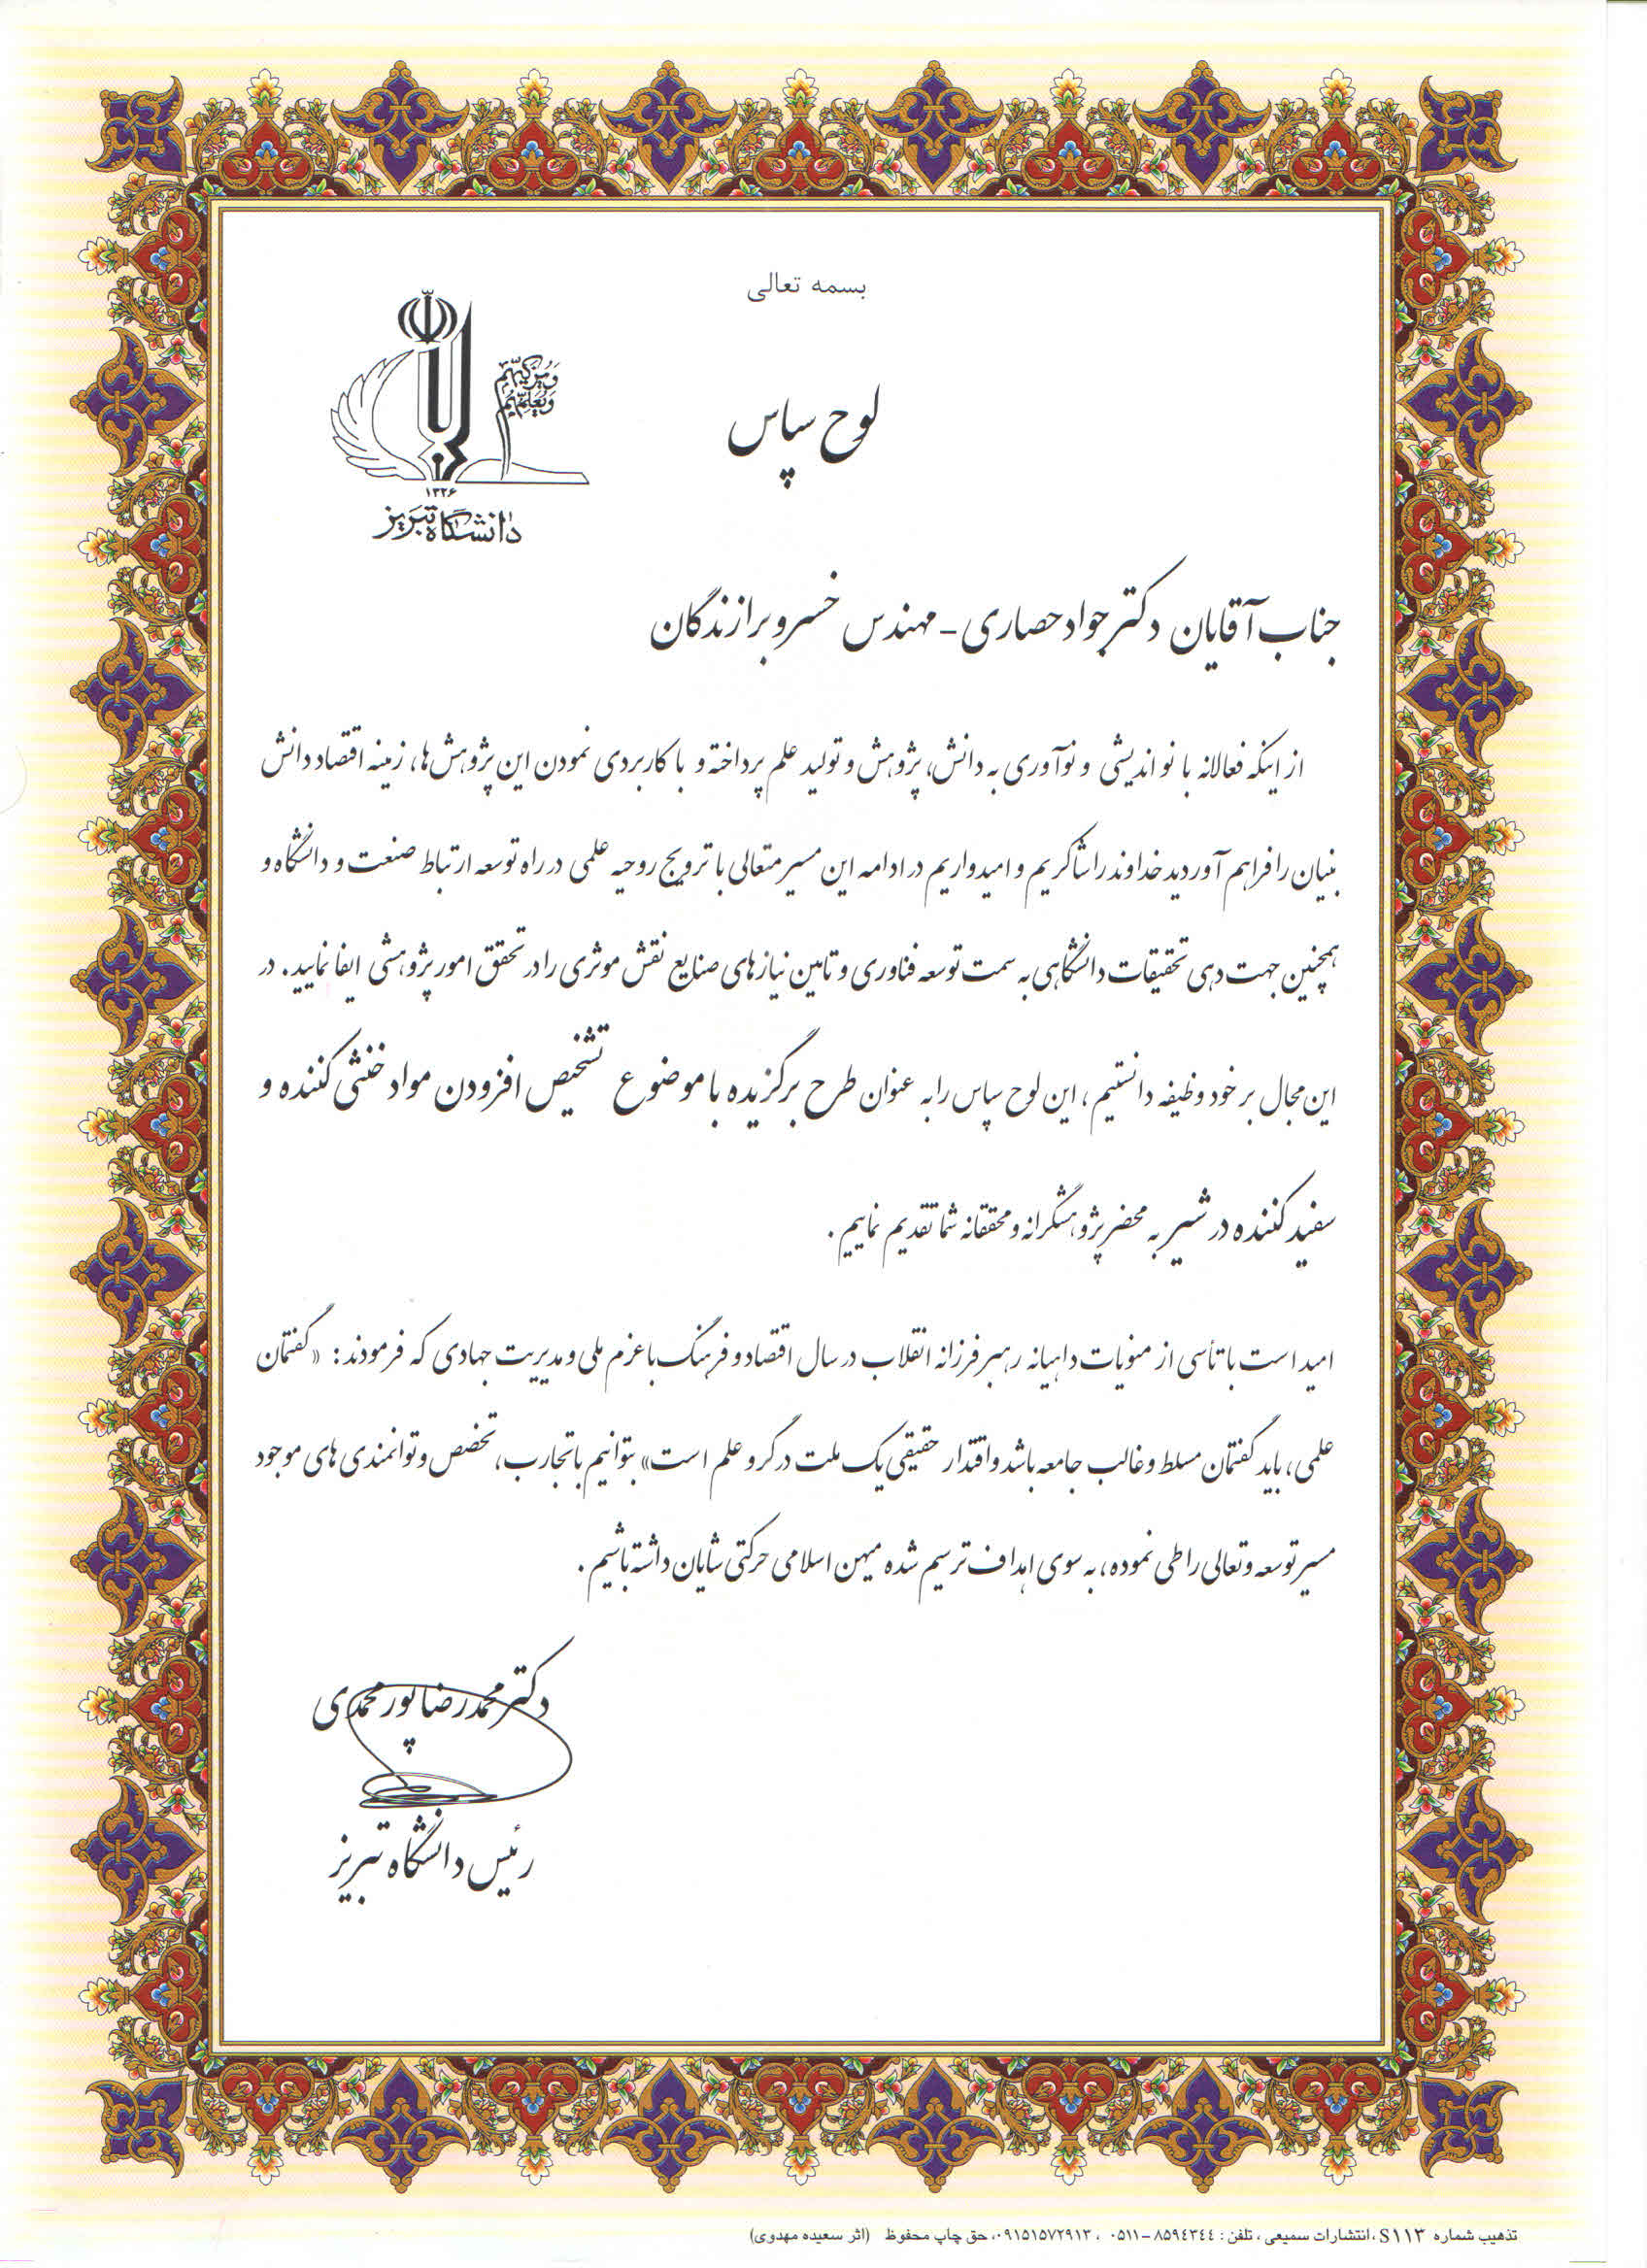 بسمه تعالی
لوح سپاس
ویزکیهم
ویعلمهم
۱۳۲۶
دانشگاه تبریز
جناب آقایان دکتر جواد حصاری - مهندس خسرو برازندگان
از اینکه فعالانه با نواندیشی و نوآوری به دانش، پژوهش و تولید علم پرداخته و با کاربردی نمودن این پژوهش‌ها، زمینه اقتصاد دانش
بنیان را فراهم آوردید خداوند را شاکریم و امیدواریم در ادامه این مسیر متعالی با ترویج روحیه علمی در راه توسعه ارتباط صنعت و دانشگاه و
همچنین جهت دهی تحقیقات دانشگاهی به سمت توسعه فناوری و تامین نیازهای صنایع نقش موثری را در تحقق امور پژوهشی ایفا نمایید. در
این مجال بر خود وظیفه دانستیم، این لوح سپاس را به عنوان طرح برگزیده با موضوع تشخیص افزودن مواد خنثی کننده و
سفید کننده در شیر به محضر پژوهشگرانه و محققانه شما تقدیم نماییم.
امید است با تأسی از منویات داهیانه رهبر فرزانه انقلاب در سال اقتصاد و فرهنگ با عزم ملی و مدیریت جهادی که فرمودند: «گفتمان
علمی، باید گفتمان مسلط و غالب جامعه باشد و اقتدار حقیقی یک ملت در گرو علم است» بتوانیم با تجارب، تخصص و توانمندی های موجود
مسیر توسعه و تعالی را طی نموده، به سوی اهداف ترسیم شده میهن اسلامی حرکتی شایان داشته باشیم.
دکتر محمدرضا پورمحمدی
رئیس دانشگاه تبریز
تذهیب شماره S۱۱۳، انتشارات سمیعی، تلفن: ۸۵۹۴۳۴۴-۰۵۱۱ ، ۰۹۱۵۱۵۷۲۹۱۳، حق چاپ محفوظ (اثر سعیده مهدوی)